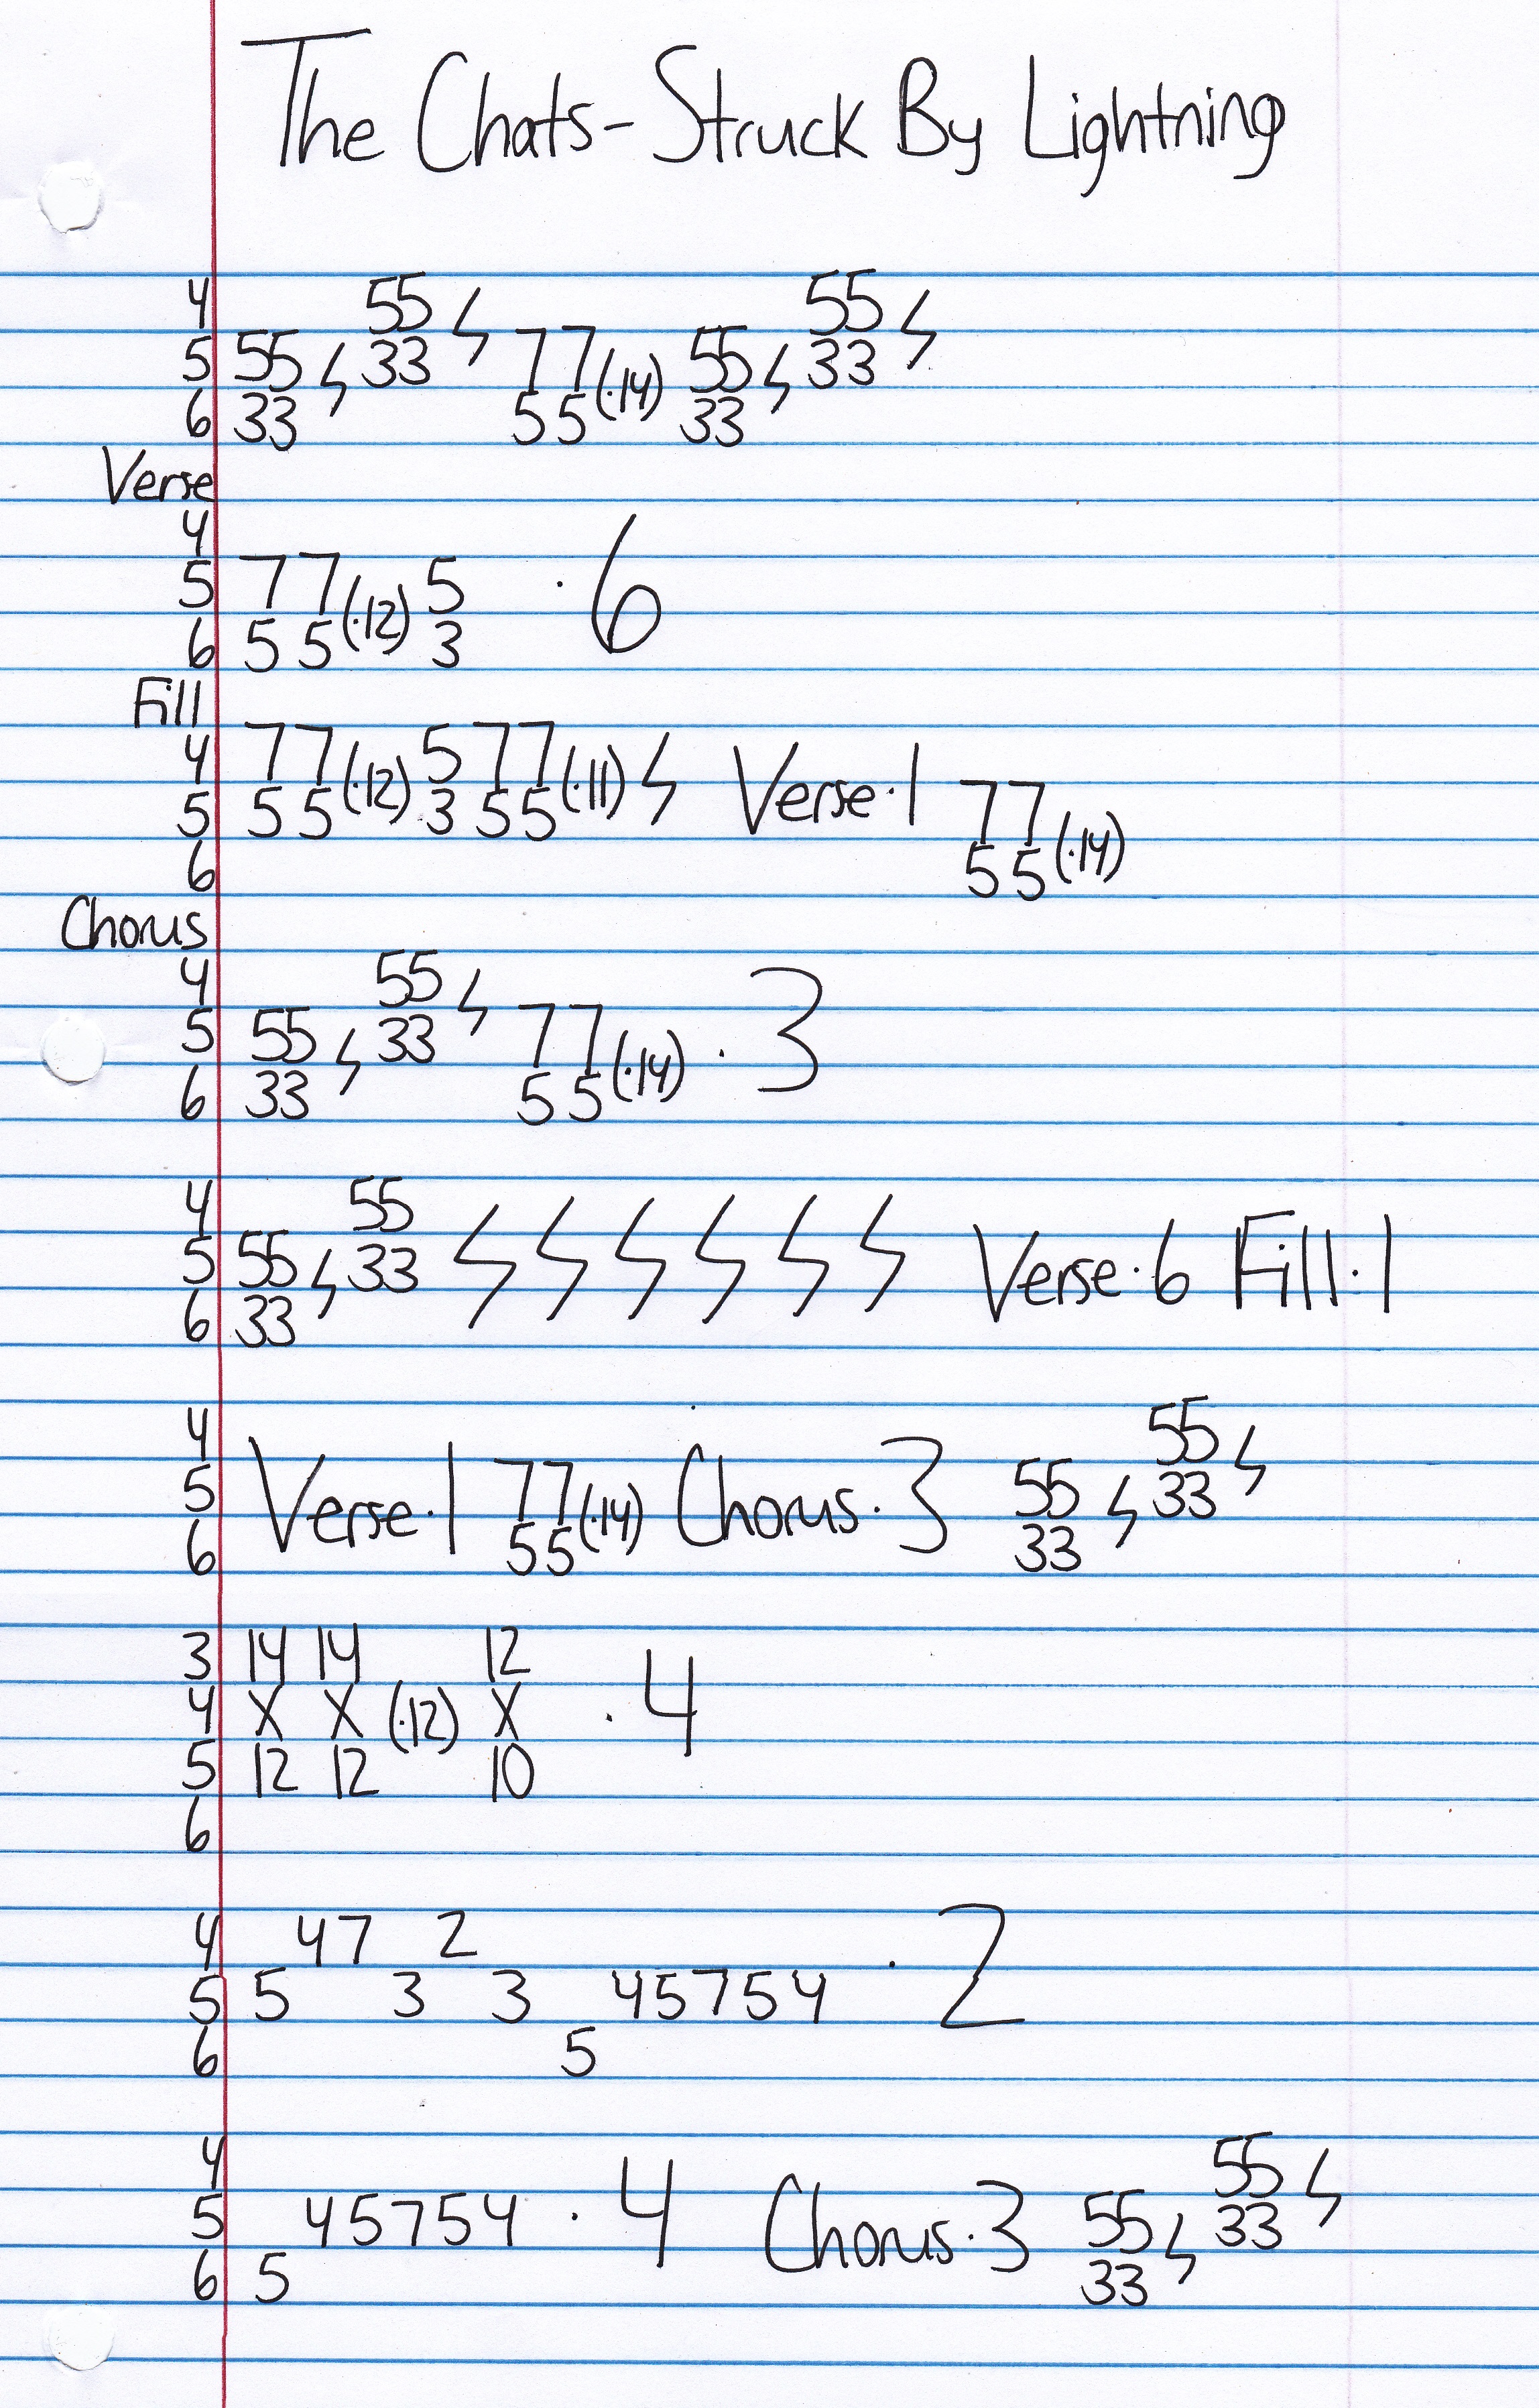 The Chats- Struck By Lightning
4 55 ϟ 55 ϟ
5 55 ϟ 33 77 (·14) 55 ϟ 33
6 33 55 33
Verse
4
5 77 (·12) 5 ·6
6 55 3
Fill
4 77 (·12) 5 77 (·11) ϟ Verse·1
5 55 3 55 77 (·14)
6 55
Chorus
4 55 ϟ
5 55 ϟ 33 77 (·14) ·3
6 33 55
4 55
5 55 ϟ 33 ϟ ϟ ϟ ϟ ϟ ϟ Verse·6 Fill·1
6 33
4 55 ϟ
5 Verse·1 77 (·14) Chorus·3 55 ϟ 33
6 55 33
3 14 14 12
4 X X (·12) X ·4
5 12 12 10
6
4 47 2
5 5 3 3 45754 ·2
6 5
4 55 ϟ
5 45754 ·4 Chorus·3 55 ϟ 33
6 5 33